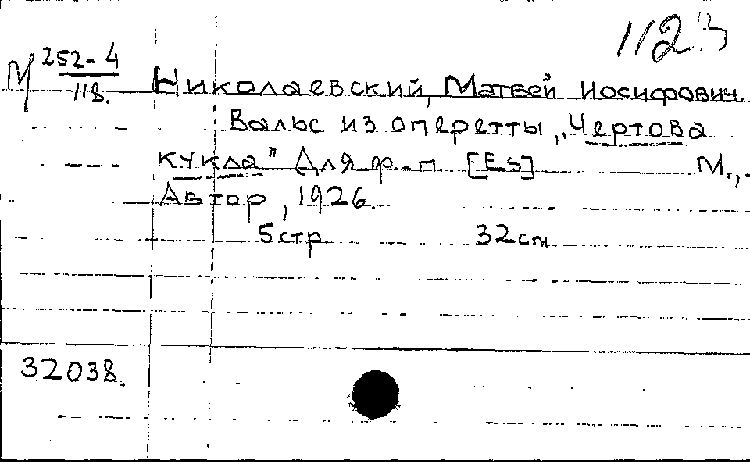 1123
М 252-4
118.
Николаевский, Матвей Иосифович
Вальс из оперетты „Чертова
кукла" Для ф.-п [Es] М.,
Автор, 1926.
5 стр 32 см
32038.